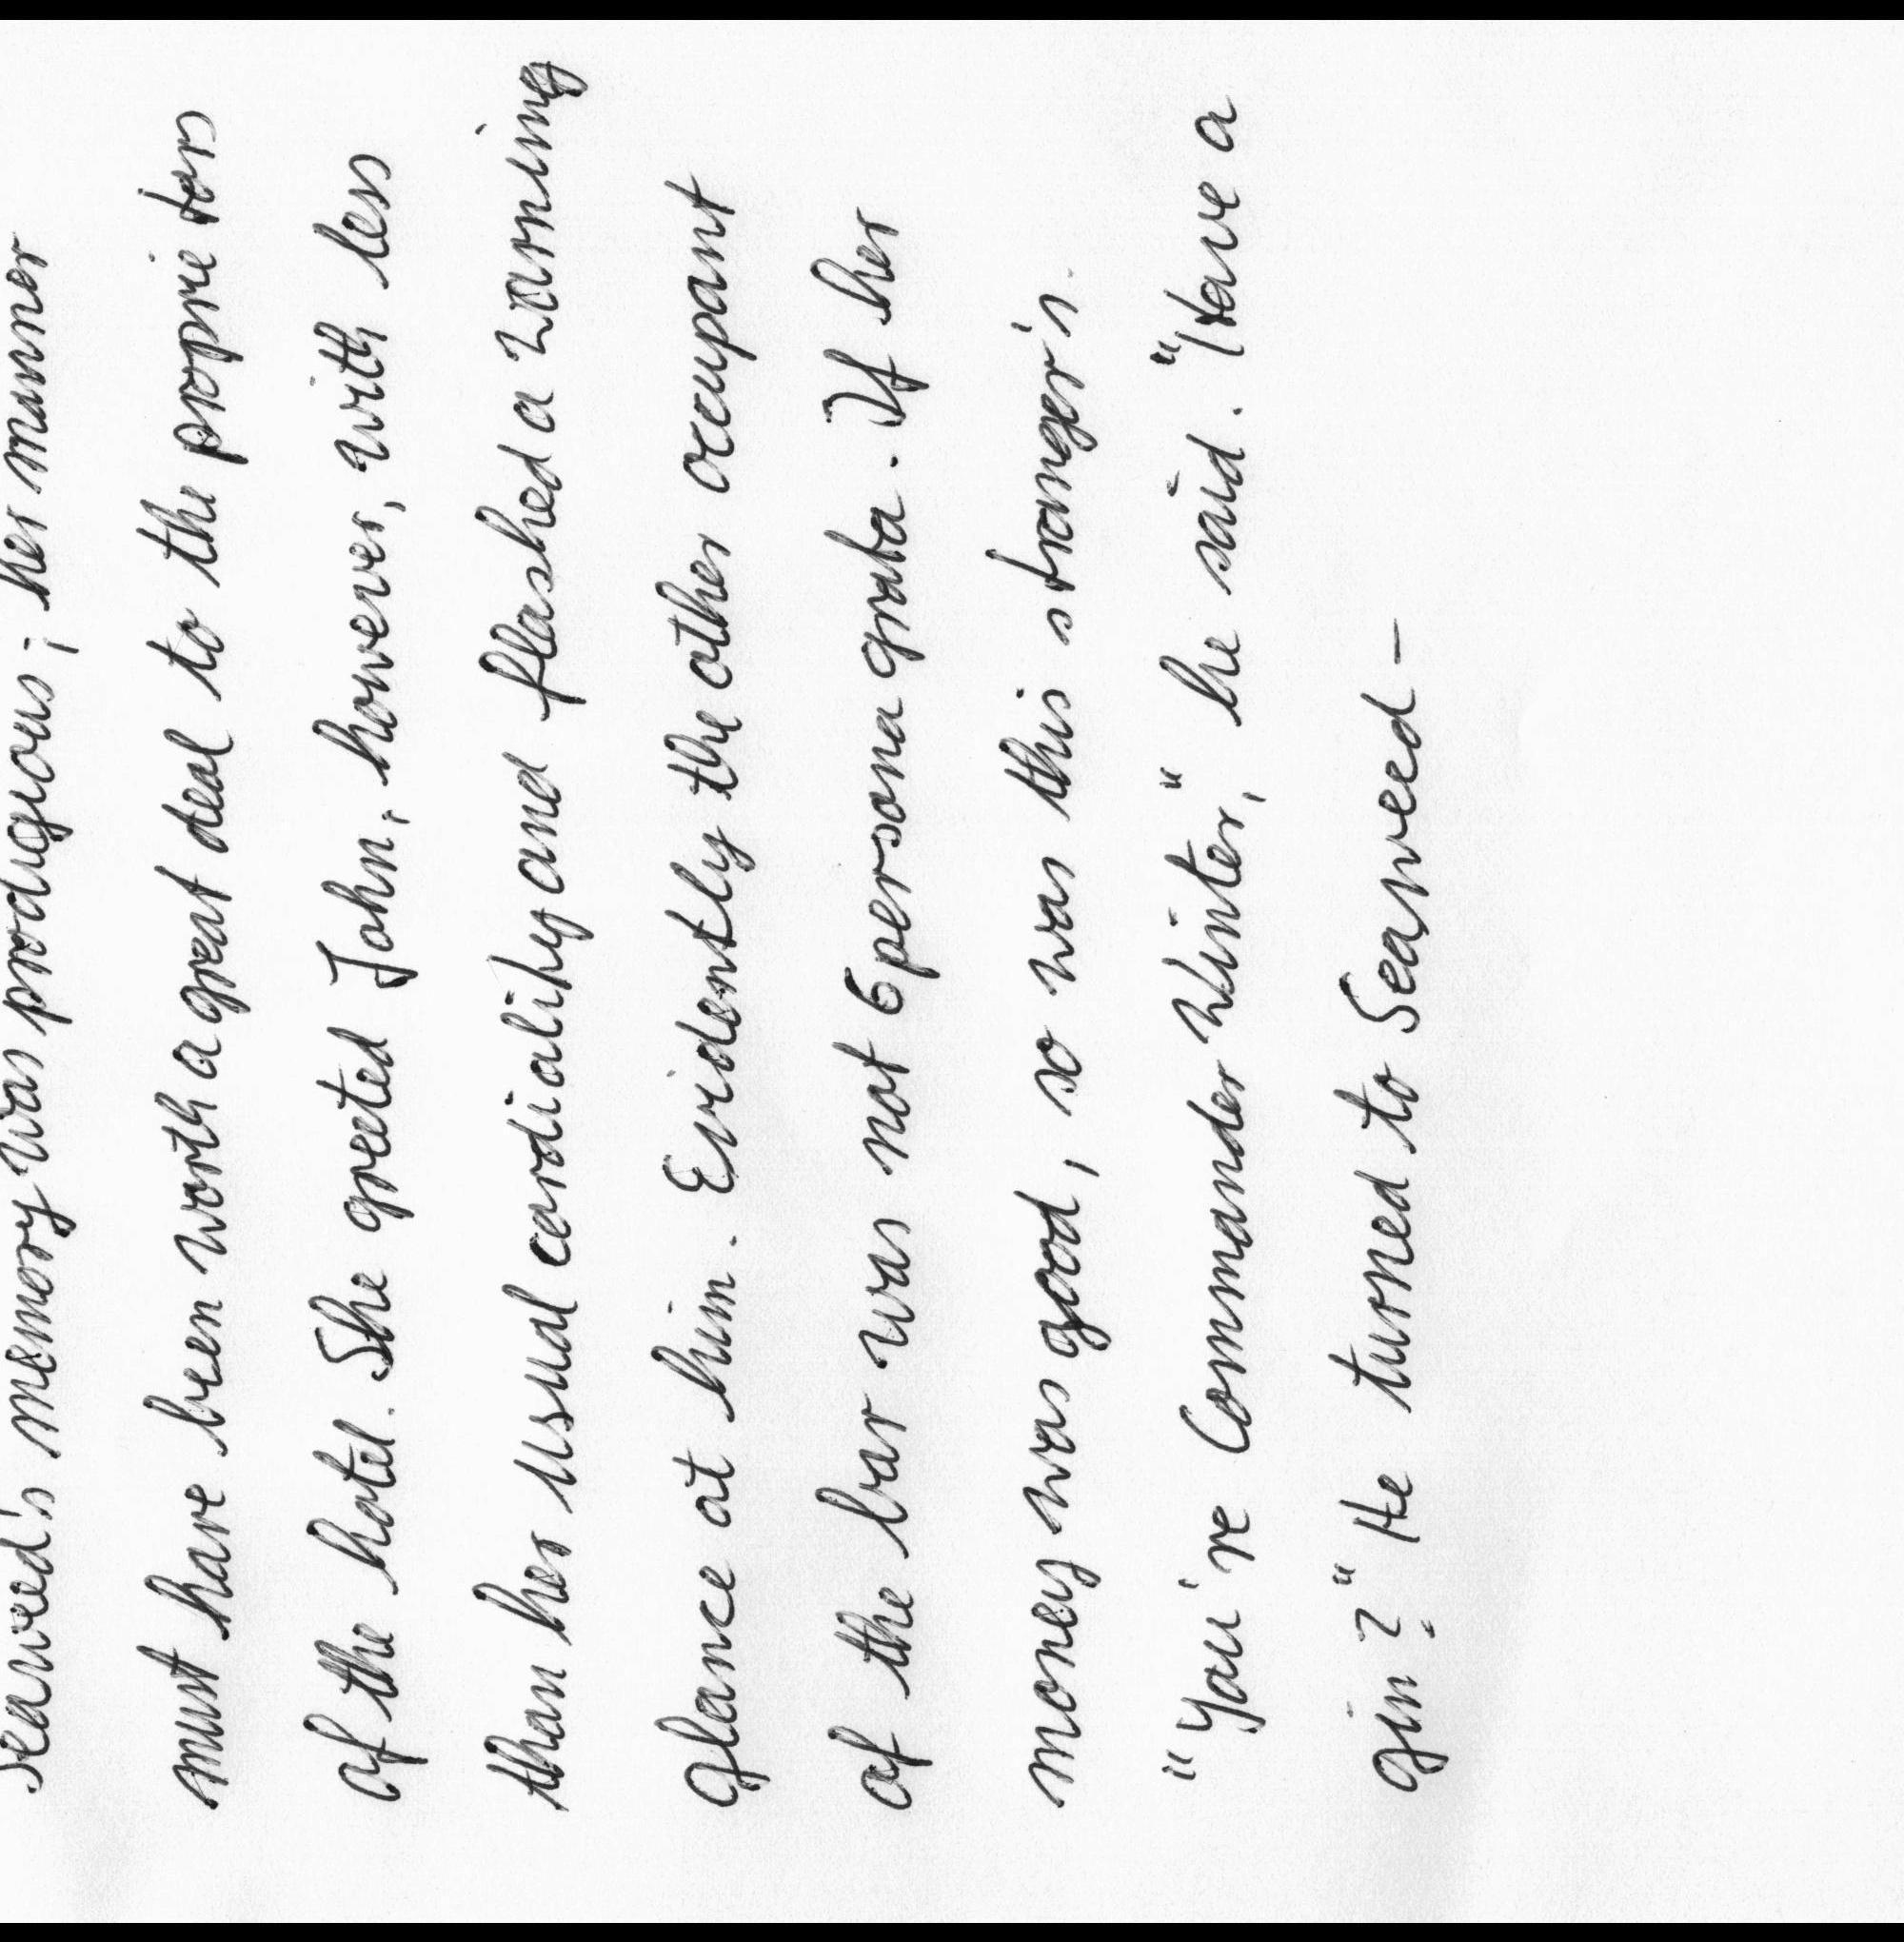 Seaweed's memory was prodigious; her manner
must have been worth a great deal to the proprietors
of the hotel. She greeted John, however, with less
than her usual cordiality and flashed a warning
glance at him. Evidently the other occupant
of the bar was not 6 persona grata. If her
money was good, so was this stranger's.
"You're Commander Winter," he said. "Have a
gin?" He turned to Seaweed -